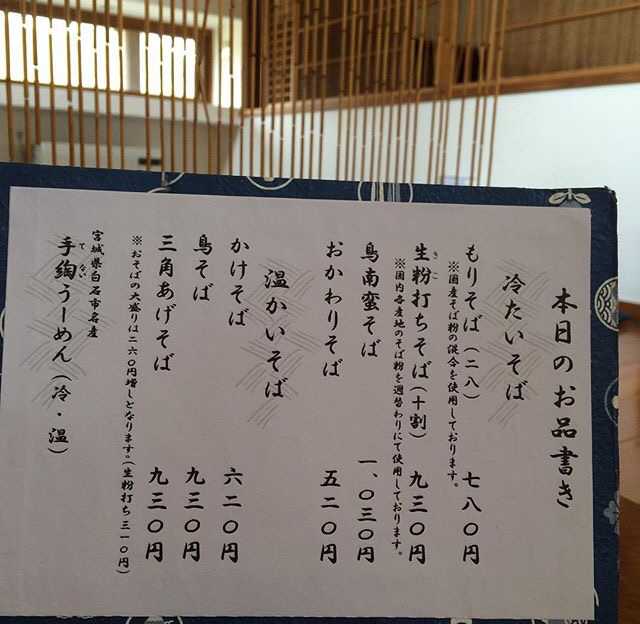 本日のお品書き
冷たいそば
もりそば（二八） 七八〇円
※国産そば粉の混合を使用しております。
生粉打ちそば（十割） 九三〇円
きこ
※国内各産地のそば粉を週替わりにて使用しております。
鳥南蛮そば 一、〇三〇円
おかわりそば 五二〇円
温かいそば
かけそば 六二〇円
鳥そば 九三〇円
三角あげそば 九三〇円
※おそばの大盛りは二六〇円増しとなります。（生粉打ち三一〇円）
宮城県白石市名産
手綯うーめん（冷・温）